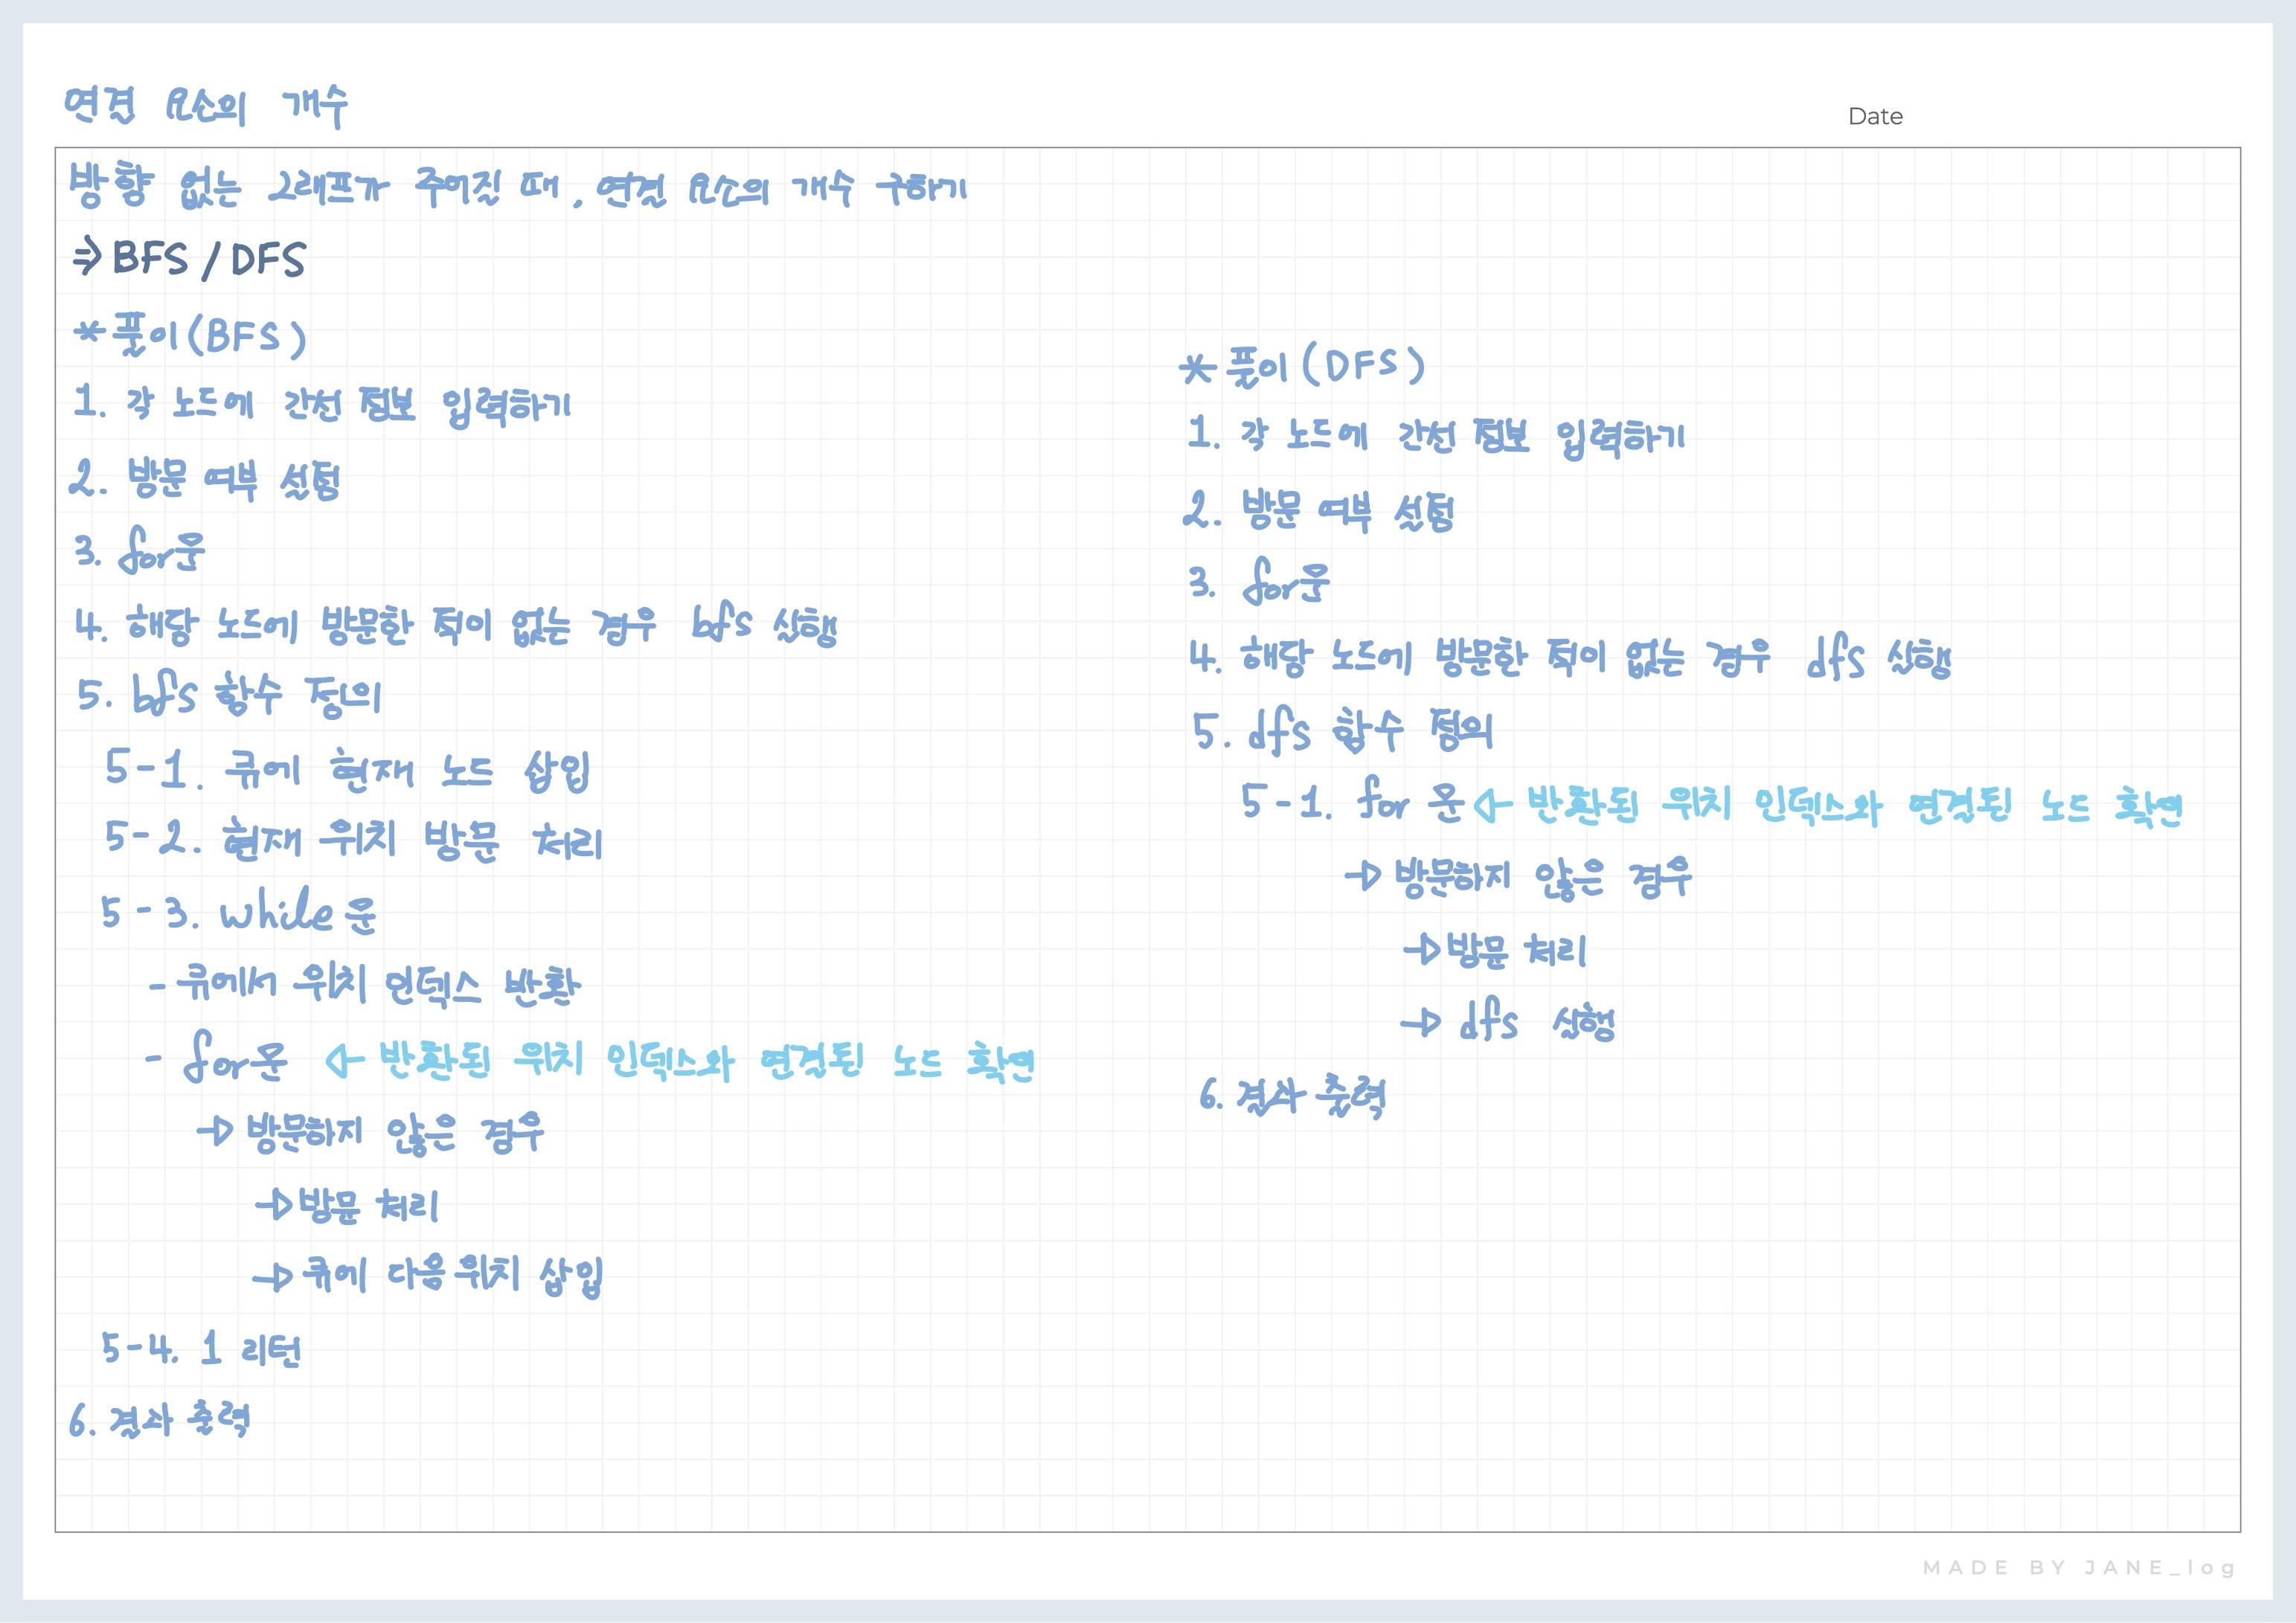 연결 요소의 개수
Date
방향 없는 그래프가 주어질 때, 연결 요소의 개수 구하기
⇒ BFS / DFS
* 풀이(BFS)
1. 각 노드에 간선 정보 입력하기
2. 방문 여부 설정
3. for문
4. 해당 노드에 방문한 적이 없는 경우 bfs 실행
5. bfs 함수 정의
5-1. 큐에 현재 노드 삽입
5-2. 현재 위치 방문 처리
5-3. while문
- 큐에서 위치 인덱스 반환
- for문 ← 반환된 위치 인덱스와 연결된 노드 확인
→ 방문하지 않은 경우
→ 방문 처리
→ 큐에 다음 위치 삽입
5-4. 1 리턴
6. 결과 출력
* 풀이(DFS)
1. 각 노드에 간선 정보 입력하기
2. 방문 여부 설정
3. for문
4. 해당 노드에 방문한 적이 없는 경우 dfs 실행
5. dfs 함수 정의
5-1. for 문 ← 반환된 위치 인덱스와 연결된 노드 확인
→ 방문하지 않은 경우
→ 방문 처리
→ dfs 실행
6. 결과 출력
MADE BY JANE_log